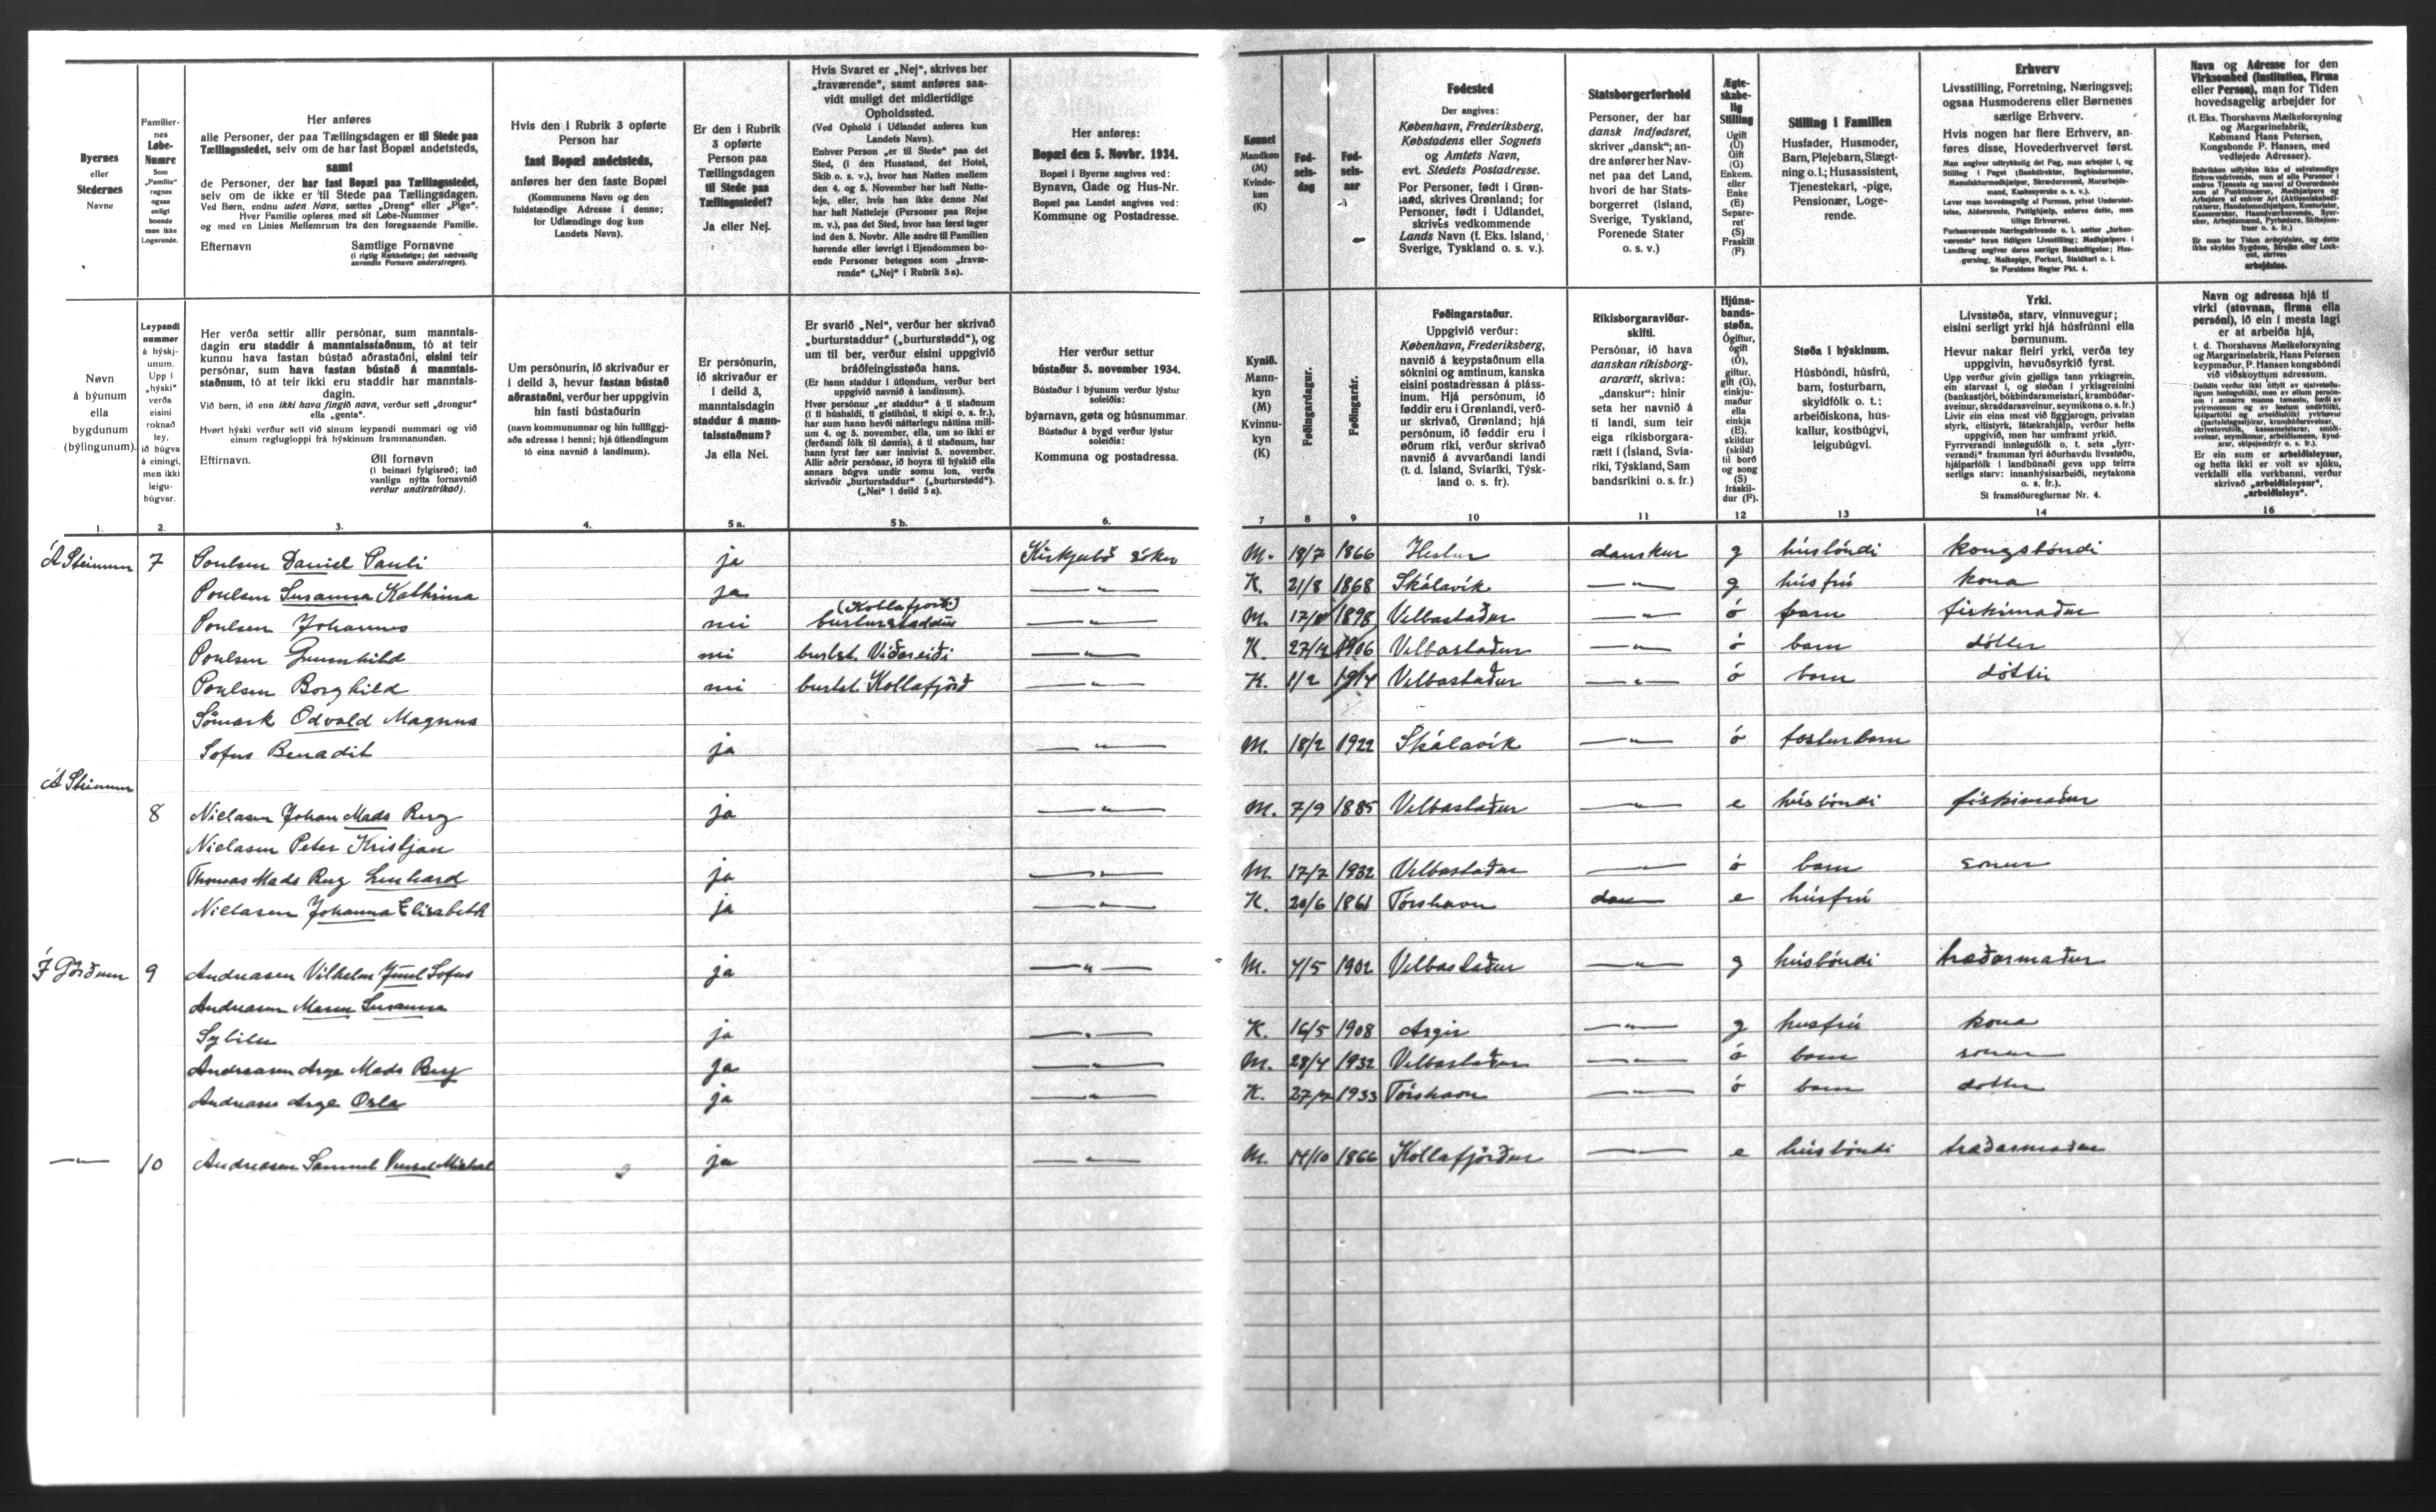 Byernes
eller
Stedernes
Navne
Familier-
nes
Løbe-
Numre
Som
„Familie“
regnes
ogsaa
enligt
boende
men ikke
Logerende.
Her anføres
alle Personer, der paa Tællingsdagen er til Stede paa
Tællingsstedet, selv om de har fast Bopæl andetsteds,
samt
de Personer, der har fast Bopæl paa Tællingsstedet,
selv om de ikke er til Stede paa Tællingsdagen.
Ved Børn, endnu uden Navn, sættes „Dreng“ eller „Pige“.
Hver Familie opføres med sit Løbe-Nummer
og med en Linies Mellemrum fra den foregaaende Familie.
Efternavn Samtlige Fornavne
(i rigtig Rækkefølge; det sædvanlig
anvendte Fornavn understreges).
Hvis den i Rubrik 3 opførte
Person har
fast Bopæl andetsteds,
anføres her den faste Bopæl
(Kommunens Navn og den
fuldstændige Adresse i denne;
for Udlændinge dog kun
Landets Navn).
Er den i Rubrik
3 opførte
Person paa
Tællingsdagen
til Stede paa
Tællingsstedet?
Ja eller Nej.
Hvis Svaret er „Nej“, skrives her
„fraværende“, samt anføres saa-
vidt muligt det midlertidige
Opholdssted.
(Ved Ophold i Udlandet anføres kun
Landets Navn).
Enhver Person „er til Stede“ paa det
Sted, (i den Husstand, det Hotel,
Skib o. s. v.), hvor han Natten mellem
den 4. og 5. November har haft Natte-
leje, eller, hvis han ikke denne Nat
har haft Natteleje (Personer paa Rejse
m. v.), paa det Sted, hvor han først tager
ind den 5. Novbr. Alle andre til Familien
hørende eller iøvrigt i Ejendommen bo-
ende Personer betegnes som „fravæ-
rende“ („Nej“ i Rubrik 5a).
Her anføres:
Bopæl den 5. Novbr. 1934.
Bopæl i Byerne angives ved:
Bynavn, Gade og Hus-Nr.
Bopæl paa Landet angives ved:
Kommune og Postadresse.
Kønnet
Mandkøn
(M)
Kvinde-
køn
(K)
Fød-
sels-
dag
Fød-
sels-
aar
Fødested
Der angives:
København, Frederiksberg,
Købstadens eller Sognets
og Amtets Navn,
evt. Stedets Postadresse.
For Personer, født i Grøn-
land, skrives Grønland; for
Personer, født i Udlandet,
skrives vedkommende
Lands Navn (f. Eks. Island,
Sverige, Tyskland o. s. v.).
Statsborgerforhold
Personer, der har
dansk Indfødsret,
skriver „dansk“; an-
dre anfører her Nav-
net paa det Land,
hvori de har Stats-
borgerret (Island,
Sverige, Tyskland,
Forenede Stater
o. s. v.)
Ægte-
skabe-
lig
Stilling
Ugift
(U)
Gift
(G)
Enkem.
eller
Enke
(E)
Separe-
ret
(S)
Fraskilt
(F)
Stilling i Familien
Husfader, Husmoder,
Barn, Plejebarn, Slægt-
ning o.l.; Husassistent,
Tjenestekarl, -pige,
Pensionær, Loge-
rende.
Erhverv
Livsstilling, Forretning, Næringsvej;
ogsaa Husmoderens eller Børnenes
særlige Erhverv.
Hvis nogen har flere Erhverv, an-
føres disse, Hovederhvervet først.
Se Forsidens Regler Pkt. 4.
Navn og Adresse for den
Virksomhed (Institution, Firma
eller Person), man for Tiden
hovedsagelig arbejder for
(f. Eks. Thorshavns Mælkeforsyning
og Margarinefabrik,
Købmand Hans Petersen,
Kongsbonde P. Hansen, med
vedføjede Adresser).
arbejdsløs.
Nøvn
á býunum
ella
bygdunum
(býlingunum).
Leypandi
nummar
á hýskj-
unum.
Upp í
„hýski“
verða
eisini
roknað
tey,
ið búgva
á einingi,
men ikki
leigu-
búgvar.
Her verða settir allir persónar, sum manntals-
dagin eru staddir á manntalsstaðnum, tó at teir
kunnu hava fastan bústað aðrastaðni, eisini teir
persónar, sum hava fastan bústað á manntals-
staðnum, tó at teir ikki eru staddir har manntals-
dagin.
Við børn, ið enn ikki hava fingið navn, verður sett „drongur“
ella „genta“.
Hvørt hýski verður sett við sínum leypandi nummari og við
einum reglugloppi frá hýskinum frammanundan.
Eftirnavn. Øll fornøvn
(í beinari fylgisrøð; tað
vanliga nýtta fornavnið
verður undirstrikað).
Um persónurin, ið skrivaður er
í deild 3, hevur fastan bústað
aðrastaðni, verður her uppgivin
hin fasti bústaðurin
(navn kommununnar og hin fullfíggj-
aða adressa í henni; hjá útlendingum
tó eina navnið á landinum).
Er persónurin,
ið skrivaður er
í deild 3,
manntalsdagin
staddur á mann-
talsstaðnum?
Ja ella Nei.
Er svarið „Nei“, verður her skrivað
„burturstaddur“ („burturstødd“), og
um til ber, verður eisini uppgivið
bráðfeingisstøða hans.
(Er hann staddur í útlondum, verður bert
uppgivið navnið á landinum).
Hvør persónur „er staddur“ á tí staðnum
(í tí húshaldi, tí gistihúsi, tí skipi o. s. fr.),
har sum hann hevði náttarlegu náttina mill-
um 4. og 5. november, ella, um so ikki er
(ferðandi fólk til dømis), á tí staðnum, har
hann fyrst fær sær innivist 5. november.
Allir aðrir persónar, ið hoyra til hýskið ella
annars búgva undir somu lon, verða
skrivaðir „burturstaddur“ („burturstødd“).
(„Nei“ í deild 5a).
Her verður settur
bústaður 5. november 1934.
Bústaður í býunum verður lýstur
soleiðis:
býarnavn, gøta og húsnummar.
Bústaður á bygd verður lýstur
soleiðis:
Kommuna og postadressa.
Kynið.
Mann-
kyn
(M)
Kvinnu-
kyn
(K)
Føðingardagur.
Føðingarár.
Føðingarstaður.
Uppgivið verður:
København, Frederiksberg,
navnið á keypstaðnum ella
sóknini og amtinum, kanska
eisini postadressan á pláss-
inum. Hjá persónum, ið
føddir eru í Grønlandi, verð-
ur skrivað, Grønland; hjá
persónum, ið føddir eru í
øðrum ríki, verður skrivað
navnið á avvarðandi landi
(t. d. Ísland, Svíaríki, Týsk-
land o. s. fr).
Ríkisborgaraviður-
skifti.
Persónar, ið hava
danskan ríkisborg-
ararætt, skriva:
„danskur“: hinir
seta her navnið á
tí landi, sum teir
eiga ríkisborgara-
rætt í (Ísland, Svía-
ríki, Týskland, Sam
bandsríkini o. s. fr.)
Hjúna-
bands-
støða.
Ógiftur,
ógift
(Ó),
giftur,
gift (G),
einkju-
maður
ella
einkja
(E),
skildur
(skild)
til borð
og song
(S)
fráskil-
dur (F).
Støða í hýskinum.
Húsbóndi, húsfrú,
barn, fosturbarn,
skyldfólk o. t.;
arbeiðiskona, hús-
kallur, kostbúgvi,
leigubúgvi.
Yrki.
Livsstøða, starv, vinnuvegur;
eisini serligt yrki hjá húsfrúnni ella
børnunum.
Hevur nakar fleiri yrki, verða tey
uppgivin, høvuðsyrkið fyrst.
Sí framsíðureglurnar Nr. 4.
Navn og adressa hjá tí
virki (stovnan, firma ella
persóni), ið ein í mesta lagi
er at arbeiða hjá,
t. d. Thorshavns Mælkeforsyning
og Margarinefabrik, Hans Petersen
keypmaður, P. Hansen kongsbóndi
við viðskoyttum adressum.
skrivað „arbeiðsleysur“,
„arbeiðsleys“.
1. 2. 3. 4. 5 a. 5 b. 6. 7 8 9 10 11 12 13 14 16
Á Steinum 7 Poulsen Daniel Pauli ja Kirkjubø sókn M. 18/7 1866 Hestur danskur g húsbóndi kongsbóndi
Poulsen Susanna Kathrina ja —"— K. 21/8 1868 Skálavík —"— g húsfrú kona
(Kollafjørð)
Poulsen Johannes nei burturstaddur —"— M. 1898 Velbastaður —"— ó barn fiskimaður
Poulsen Gunnhild nei burtst. Viðareiði —"— K. 1906 Velbastaður —"— ó barn dóttir
Poulsen Borghild nei burtst. Kollafjørð —"— K. 1/2 1914 Velbastaður —"— ó barn dóttir
Sömark Odvald Magnus
Sofus Benadit ja —"— M. 18/2 1922 Skálavík —"— ó fosturbarn
Á Steinum
8 Nielasen Johan Mads Berg ja —"— M. 7/9 1885 Velbastaður —"— e húsbóndi fiskimaður
Nielasen Peter Kristjan
Thomas Mads Berg Lenhard ja —"— M. 17/7 1932 Velbastaður —"— ó barn sonur
Nielasen Johanna Elisabeth ja —"— K. 20/6 1861 Tórshavn e húsfrú
Í Gørðum 9 Andreasen Vilhelm Juul Sofus ja —"— M. 4/5 1902 Velbastaður —"— g húsbóndi traðarmaður
Andreasen Maren Susanna
Sybilu ja —"— K. 16/5 1908 Argir —"— g husfrú kona
Andreasen Arge Mads Berg ja —"— M. 28/4 1932 Velbastaður —"— ó barn sonur
Andreasen Arge Orla ja —"— K. 1933 Tórshavn —"— ó barn dottir
—"— 10 Andreasen Samuel Michal ja —"— M. 14/10 1866 Kollafjørður —"— e húsbóndi traðarmaður